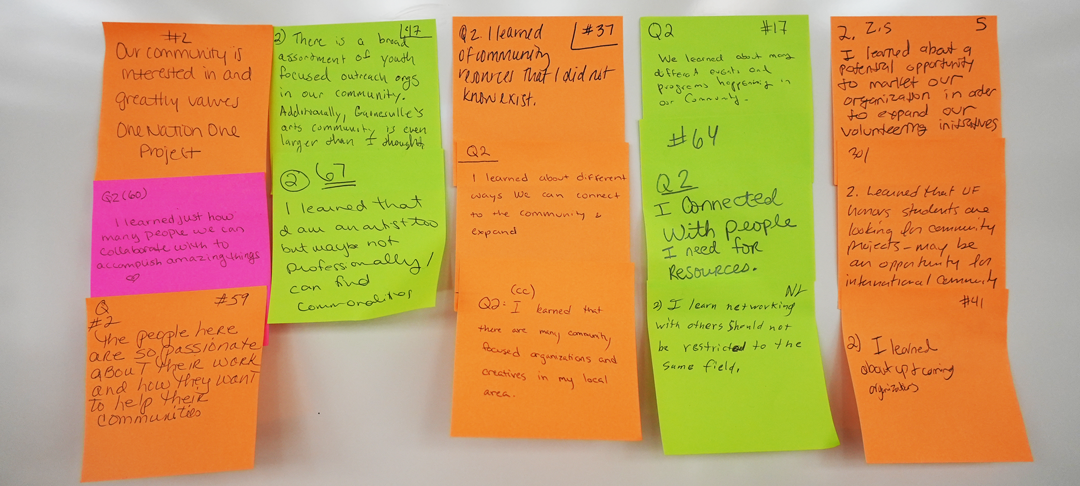 #2
Our community is
interested in and
greattly values
One Nation One
Project
Q2(60)
I learned just how
many people we can
collaborate with to
accomplish amazing things
Q
#2
#59
the people here
are so passionate
about their work
and how they want
to help their
communities
47
2) There is a broad
assortment of youth
focused outreach orgs
in our community.
Additionally, Gainesville's
arts community is even
larger than I thought
2 67
I learned that
I am an artist too
but maybe not
professionally/
can find
commonalities
Q2 I learned
#37
of community
resources that I did not
know exist.
Q2
I learned about different
ways we can connect
to the community &
expand
(cc)
Q2: I learned that
there are many community
focused organizations and
creatives in my local
area.
Q2 #17
We learned about many
different events and
programs happening in
our Community.
#64
Q2
I Connected
With people
I need for
Resources.
2) I learn networking
with others should not
be restricted to the
same field.
2. Z.S 5
I learned about a
potential opportunity
to market our
organization in order
to expand our
volunteering initiatives
301
2. Learned that UF
honors students are
looking for community
projects - may be
an opportunity for
international community
#41
2) I learned
about up & coming
organizations